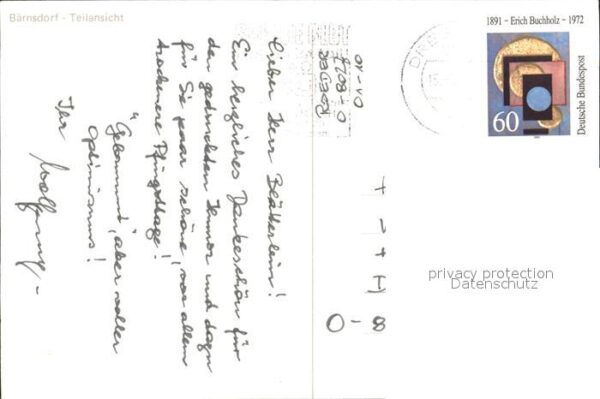 Bärnsdorf - Teilansicht
Lieber Herr Blätterlein!
Ein herzliches Dankeschön für
den gedruckten Humor und dazu
für Sie paar schöne, vor allem
trockenere Pfingsttage!
"Gekommen", aber voller
Optimismus!
Ihr Wolfgang -
1891 - Erich Buchholz - 1972
Deutsche Bundespost
60
DRESDEN
O-8027
privacy protection
Datenschutz
O-8